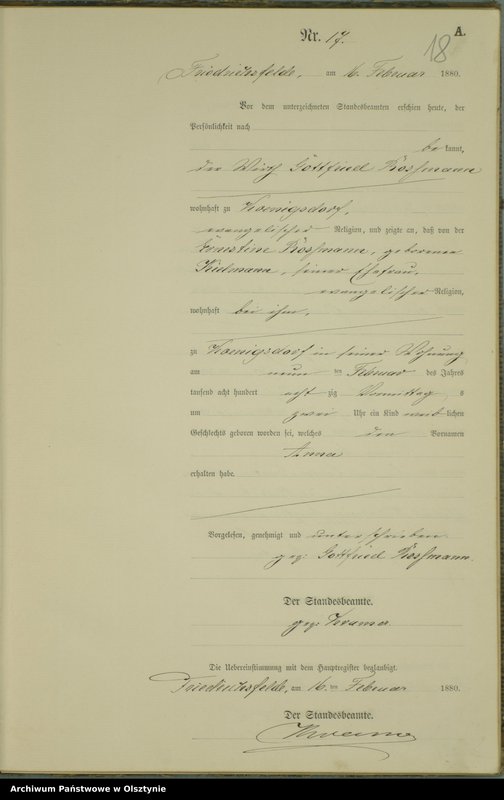 Nr. 17.
18
A.
Friedrichsfelde, am 16. Februar 1880.
Vor dem unterzeichneten Standesbeamten erschien heute, der
Persönlichkeit nach
be kannt,
der Wirth Gottfried Rossmann
wohnhaft zu Koenigsdorf,
evangelischer Religion, und zeigte an, daß von der
Ernestine Rossmann, geborenen
seiner Ehefrau,
evangelischer Religion,
wohnhaft bei ihm,
zu Koenigsdorf in seiner Wohnung
am neun ten Februar des Jahres
tausend acht hundert acht zig Vormittag s
um zwei Uhr ein Kind weib lichen
Geschlechts geboren worden sei, welches den Vornamen
Anna
erhalten habe.
Vorgelesen, genehmigt und unterschrieben
gez. Gottfried Rossmann.
Der Standesbeamte.
gez.
Die Uebereinstimmung mit dem Hauptregister beglaubigt.
Friedrichsfelde, am 16. ten Februar 1880.
Der Standesbeamte.
Archiwum Państwowe w Olsztynie